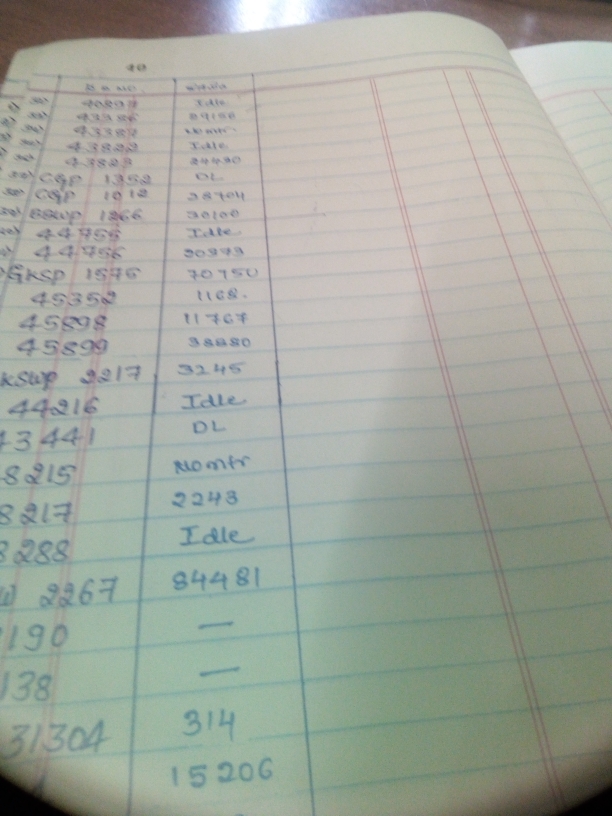 40
40897 Idle
43386 27150
43387 Nomtr
43822 Idle
43823 24490
CGP 1352 DL
CGP 1012 38704
BSWP 1266 30100
44755 Idle
44756 20973
GKSP 1575 70750
45352 1168.
45898 11767
45899 38880
KSWP 2217 3245
44216 Idle
43441 DL
8215 Nomtr
8217 2243
8288 Idle
2267 84481
190 —
138 —
31304 314
15206